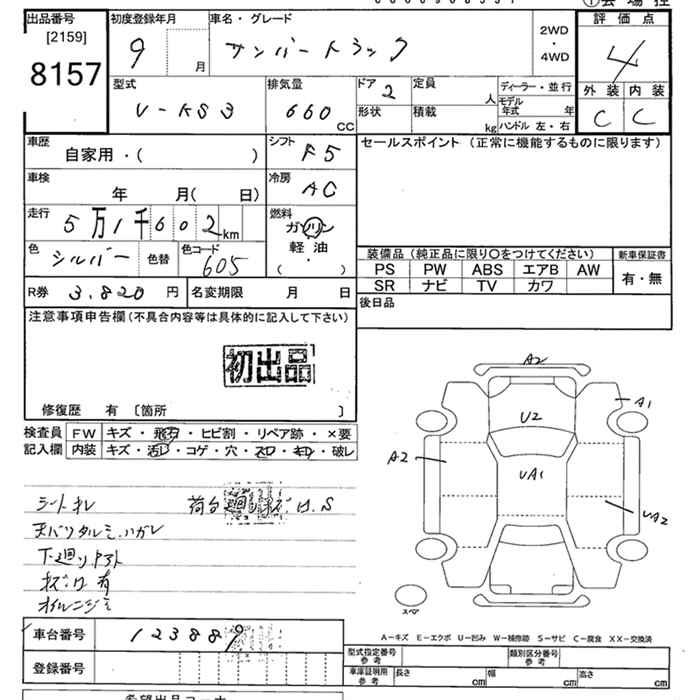 出品番号
[2159]
8157
初度登録年月
9
月
車名・グレード
サンバートラック
2WD
・
4WD
評価点
4
外装 内装
C C
型式
V-KS3
排気量
660
CC
ドア
2
形状
定員
人
積載
kg
ディーラー・並行
モデル
年式 年
ハンドル 左・右
車歴
自家用・( )
シフト
F5
セールスポイント (正常に機能するものに限ります)
車検
年 月( 日)
冷房
AC
走行
5万1千602
km
燃料
ガソリン
軽油
・
( )
色
シルバー
色替
色コード
605
装備品 (純正品に限り○をつけてください)
新車保証書
PS PW ABS エアB AW
SR ナビ TV カワ
有・無
R券 3,820 円
名変期限 月 日
後日品
注意事項申告欄 (不具合内容等は具体的に記入して下さい)
初出品
修復歴 有 〔箇所 〕
検査員 FW キズ・飛石・ヒビ割・リペア跡・×要
記入欄 内装 キズ・汚レ・コゲ・穴・スレ・キレ・破レ
A2
A1
U2
A2
UA1
UA2
シートキレ
荷台
天バリタルミ、ハガレ
下廻リ
サビ穴有
オイルニジミ
スペア
A-キズ E-エクボ U-凹み W-補修跡 S-サビ C-腐食 XX-交換済
車台番号
123889
登録番号
型式指定番号
参考
類別区分番号
参考
車庫証明用
参考
長さ
cm
幅
cm
高さ
cm
希望出品コーナー